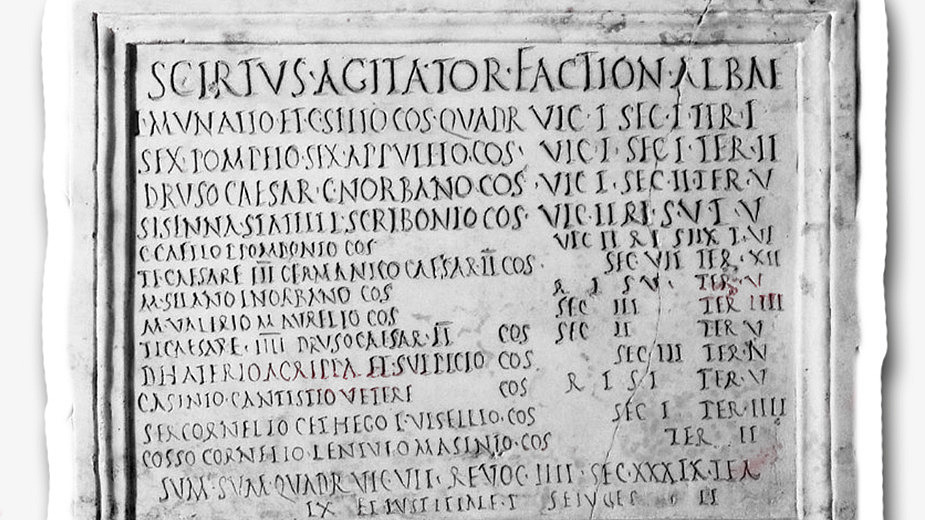 SCIRTVS·AGITATOR·FACTION·ALBAE
L·MVNATIO·ET·C·SILIO COS·QVADR VIC·I SEC·I TER·I
SEX·POMPEIO·SEX·APPVLEIO·COS· VIC·I·SEC I·TER·II
DRVSO CAESAR·C·NORBANO COS·VIC I·SEC·II TER·V
SISENNA·STATILI L·SCRIBONIO COS·VIC·II R I·S·V T·V
C·CAELIO L·POMPONIO COS VIC II R I SIIX T·VI
TI·CAESARE III GERMANICO CAESAR·II COS· SEC VII TER·XII
M·SILANO L·NORBANO COS R I S V· TER·V
M·VALERIO M AVRELIO COS SEC III TER IIII
TI·CAESARE·IIII DRVSO CAESAR·II COS SEC II TER V
D·HATERIO AGRIPPA ET·SVLPICIO COS SEC III TER·IV
C·ASINIO·C·ANTISTIO VETERE COS R I S I TER·V
SER·CORNELIO CETHEGO L·VISELLIO·COS SEC I TER·IIII
COSSO CORNELIO·LENTVLO M ASINIO·COS TER II
SVM·SVM·QVADR VIC VII· REVOC IIII·SEC·XXXIX·TER
LX ET IVSTITIALE·I SEIVGE II